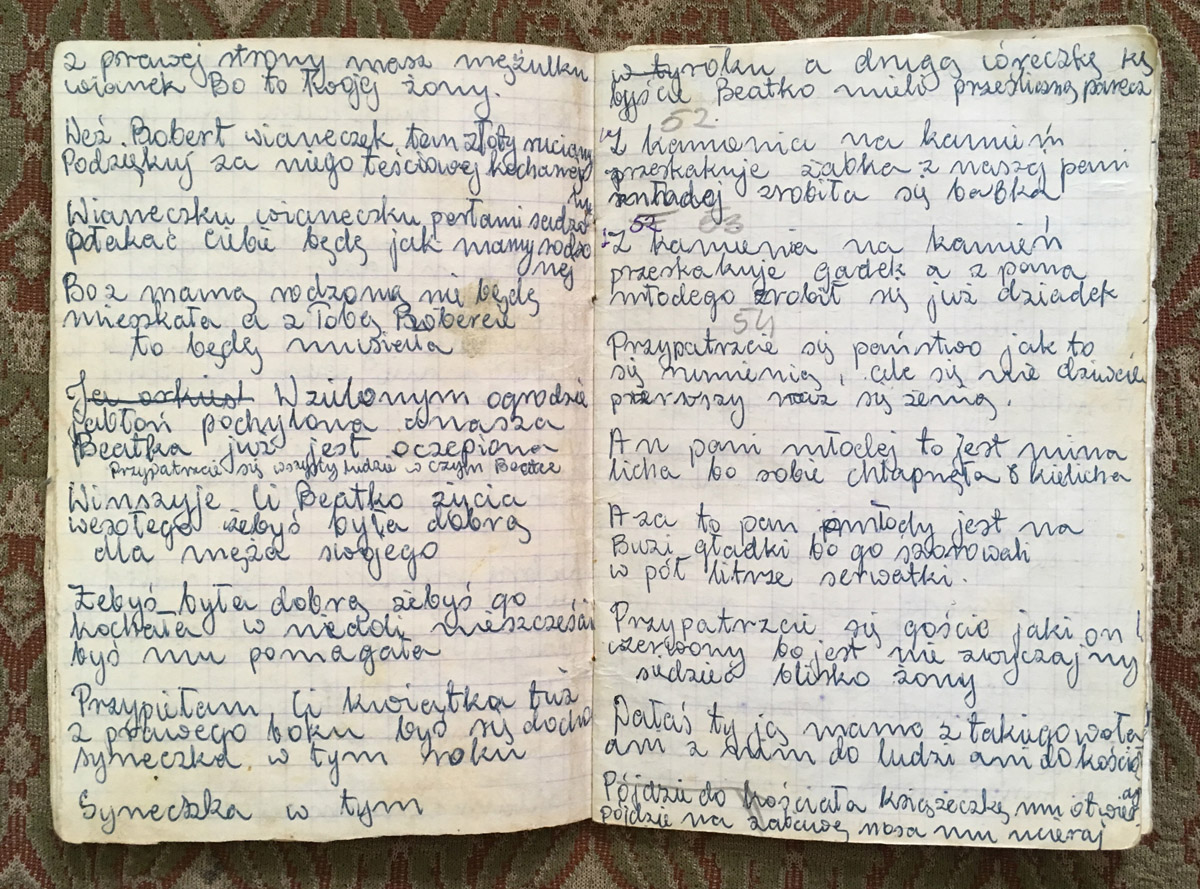 z prawej strony masz mężulku
wianek Bo to twojej żony.
Weź Robert wianeczek ten złoty ruciany
Podziękuj za niego teściowej kochanej
Wianeczku wianeczku perłami sadzo
ny
płakać ciebie będę jak mamy rodzo
nej
Bo z mamą rodzoną nie będę
mieszkała a z Tobą Robercie
to będę musiała
Ja orkiest W zielonym ogrodzie
jabłoń pochylona a nasza
Beatka już jest oczepiona
Przypatrzcie się wszyscy ludzie w czym Beatce
Winszyje Ci Beatko życia
wesołego żebyś była dobrą
dla męża swojego
Żebyś była dobrą żebyś go
kochała w niedoli nieszczęściu
byś mu pomagała
Przypiełam Ci kwiatka tuż
z prawego boku byś się docho
syneczka w tym roku
Syneczka w tym
w ty roku a drugą córeczkę
byjście Beatko mieli prześliczną
52.
Z kamienia na kamień
przeskakuje żabka z naszej pani
młodej zrobiła się babka
52 53
Z kamienia na kamień
przeskakuje gadek a z pana
młodego zrobił się już dziadek
54
Przypatrzcie się państwo jak to
się rumienią, ale się nie dziwcie
pierwszy raz się żenią.
A u pani młodej to jest mina
licha bo sobie chłapnęła 8 kielicha
A za to pan młody jest na
Buzi gładki bo go szorowali
w pół litrze serwatki.
Przypatrzcie się goście jaki on
czerwony bo jest nie zwyczajny
siedzieć blisko żony
Dałaś ty ją mamo z takiego woła
ani z nim do ludzi ani do kościo
ła
Pójdzie do kościała książeczkę mu otwier
pójdzie na zabawę nosa mu ucieraj